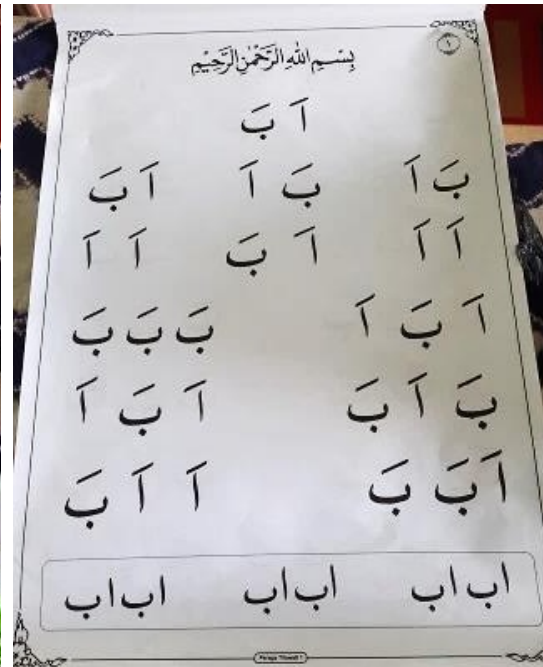 ١
بِسْمِ اللهِ الرَّحْمٰنِ الرَّحِيْمِ
اَ بَ
بَ اَ بَ اَ اَ بَ
اَ اَ اَ بَ اَ اَ
اَ بَ اَ بَ بَ بَ
بَ اَ بَ اَ بَ اَ
اَ بَ بَ اَ اَ بَ
اب اب اب اب اب اب